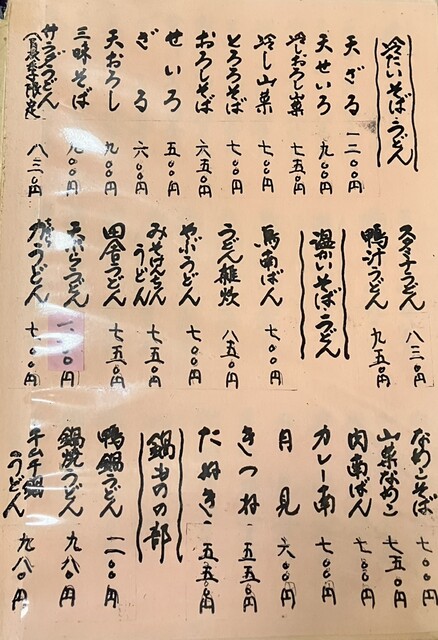 冷たいそばうどん
天ざる 一二〇〇円
天せいろ 九〇〇円
冷しおろし山菜 七五〇円
冷し山菜 七〇〇円
とろろそば 七〇〇円
おろしそば 六五〇円
せいろ 五〇〇円
ざる 六〇〇円
天おろし 九〇〇円
三味そば 九〇〇円
サラダうどん 八三〇円
スタミナうどん 八三〇円
鴨汁うどん 九五〇円
温かいそばうどん
鳥南ばん 七〇〇円
うどん雑炊 八五〇円
やぶうどん 七〇〇円
みそけんちんうどん 七五〇円
田舎うどん 七五〇円
天ぷらうどん 一、〇〇〇円
力うどん 七〇〇円
なめこそば 七〇〇円
山菜なめこ 七五〇円
肉南ばん 七〇〇円
カレー南 七〇〇円
月見 六〇〇円
きつね 五五〇円
たぬき 五五〇円
鍋ものの部
鴨鍋うどん 一一〇〇円
鍋焼うどん 九八〇円
キムチ鍋うどん 九八〇円